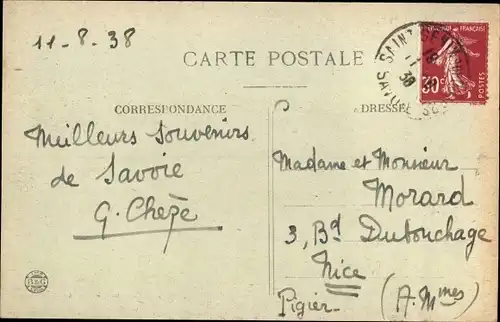 11-8-38
CARTE POSTALE
CORRESPONDANCE
ADRESSE
Meilleurs souvenirs
de Savoie
G. Chèze
Madame et Monsieur
Morard
3, Bd Dubouchage
Nice
(A. Mmes)
Pigier
30c
POSTES
SAINT
11
38